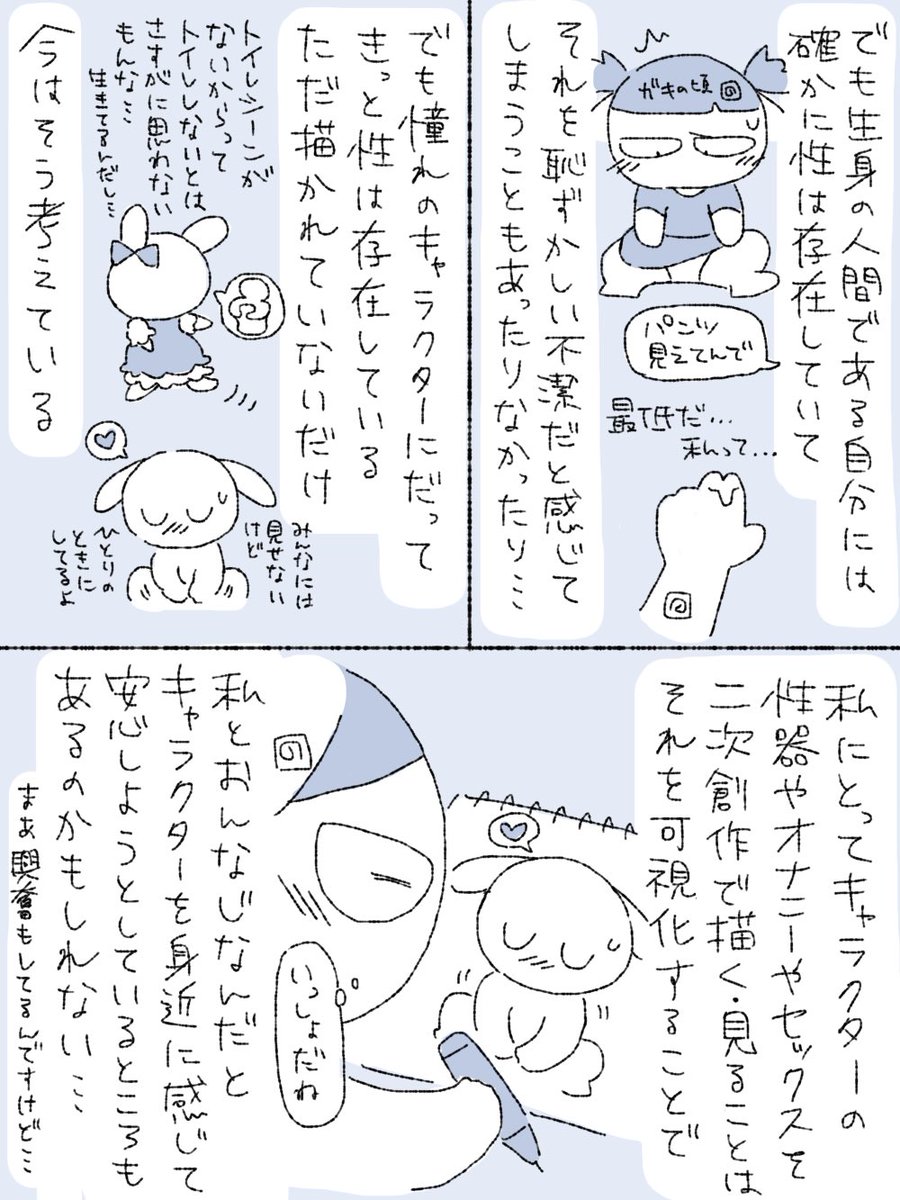 でも生身の人間である自分には
確かに性は存在していて
ガキの頃
の
パンツ
見えてんで
最低だ…
私って…
の
それを恥ずかしい不潔だと感じて
しまうこともあったりなかったり…
でも憧れのキャラクターにだって
きっと性は存在している
ただ描かれていないだけ
トイレシーンが
ないからって
トイレしないとは
さすがに思わない
もんな…
生きてるんだし…
みんなには
見せない
けど
ひとりの
ときに
してるよ
今はそう考えている
私にとってキャラクターの
性器やオナニーやセックスを
二次創作で描く・見ることは
それを可視化することで
の
いっしょだね
私とおんなじなんだと
キャラクターを身近に感じて
安心しようとしているところも
あるのかもしれない…
まあ興奮もしてるんですけど…